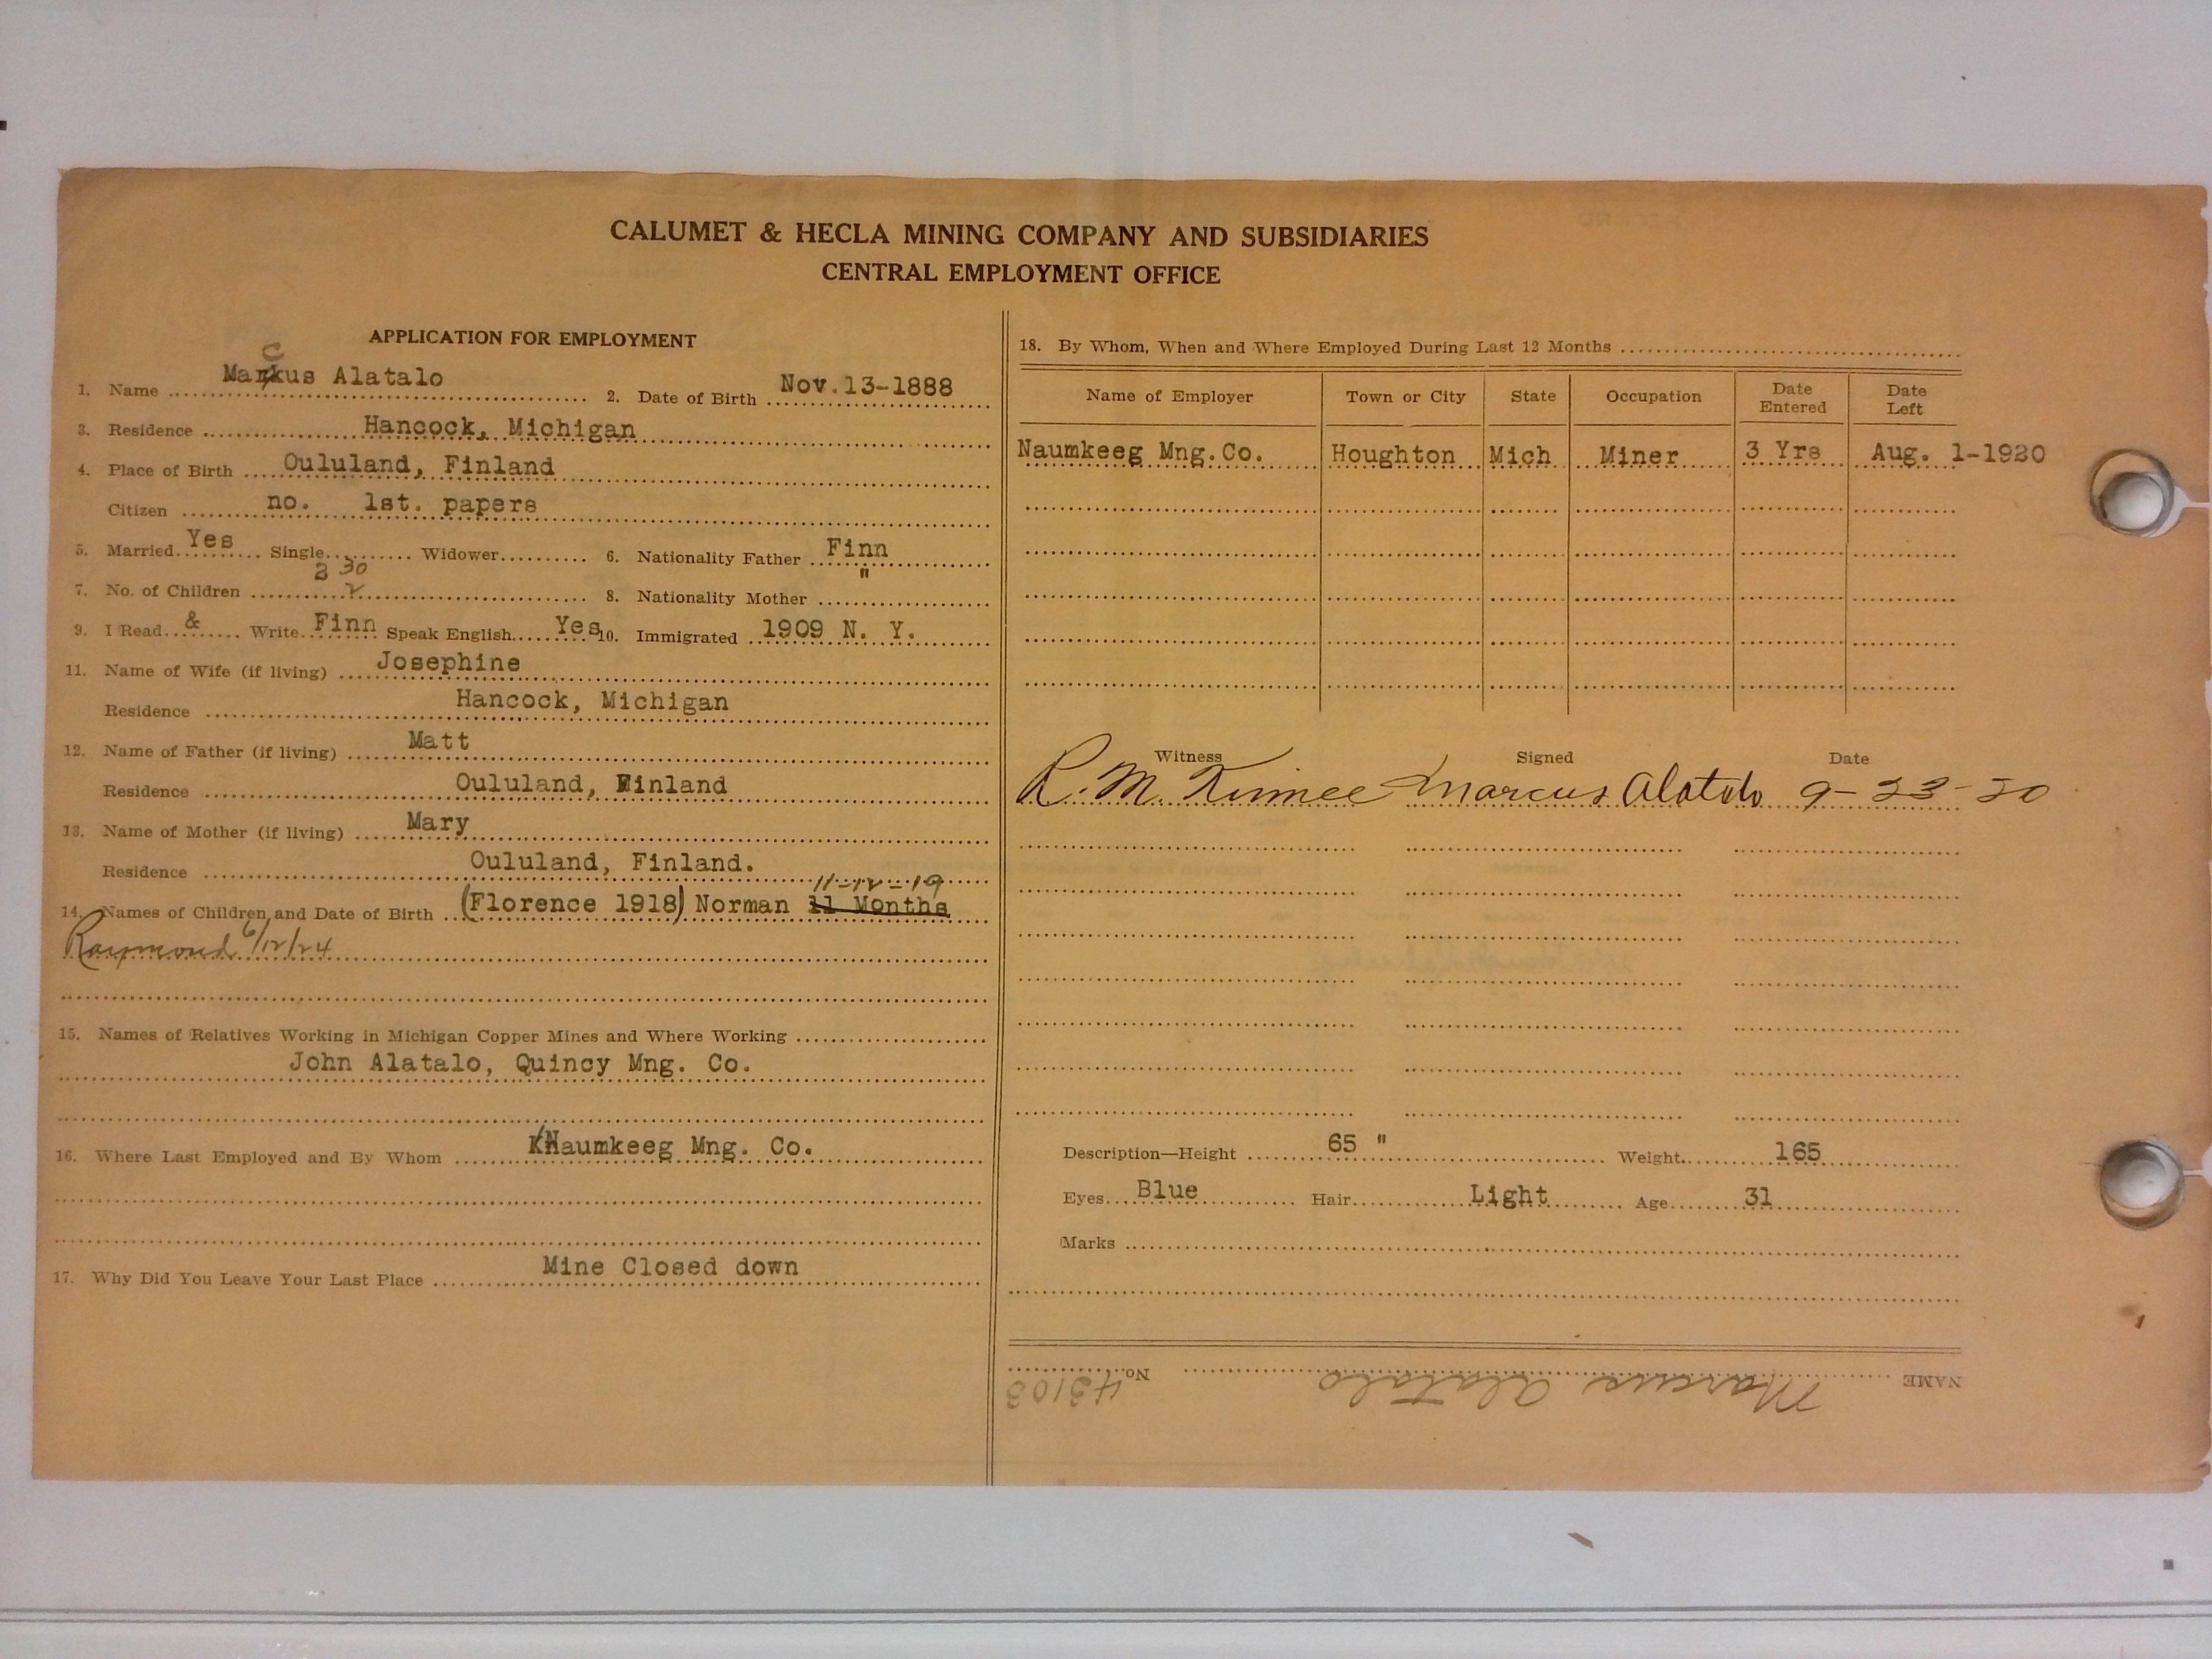 CALUMET & HECLA MINING COMPANY AND SUBSIDIARIES
CENTRAL EMPLOYMENT OFFICE
APPLICATION FOR EMPLOYMENT
c
1. Name Markus Alatalo 2. Date of Birth Nov.13-1888
3. Residence Hancock, Michigan
4. Place of Birth Oululand, Finland
Citizen no. 1st. papers
5. Married Yes Single Widower 6. Nationality Father Finn
3 30
7. No. of Children 2 8. Nationality Mother "
9. I Read & Write Finn Speak English Yes 10. Immigrated 1909 N. Y.
11. Name of Wife (if living) Josephine
Residence Hancock, Michigan
12. Name of Father (if living) Matt
Residence Oululand, Finland
13. Name of Mother (if living) Mary
Residence Oululand, Finland.
11-12-19
14. Names of Children and Date of Birth (Florence 1918) Norman 11 Months
Raymond 6/12/24
15. Names of Relatives Working in Michigan Copper Mines and Where Working
John Alatalo, Quincy Mng. Co.
16. Where Last Employed and By Whom KNaumkeeg Mng. Co.
17. Why Did You Leave Your Last Place Mine Closed down
18. By Whom, When and Where Employed During Last 12 Months
Name of Employer Town or City State Occupation Date Entered Date Left
Naumkeeg Mng.Co. Houghton Mich Miner 3 Yrs Aug. 1-1920
Witness Signed Date
R. M. Marcus Alatalo 9-23-20
Description—Height 65 " Weight 165
Eyes Blue Hair Light Age 31
Marks
NAME Marcus Alatalo No. 43103